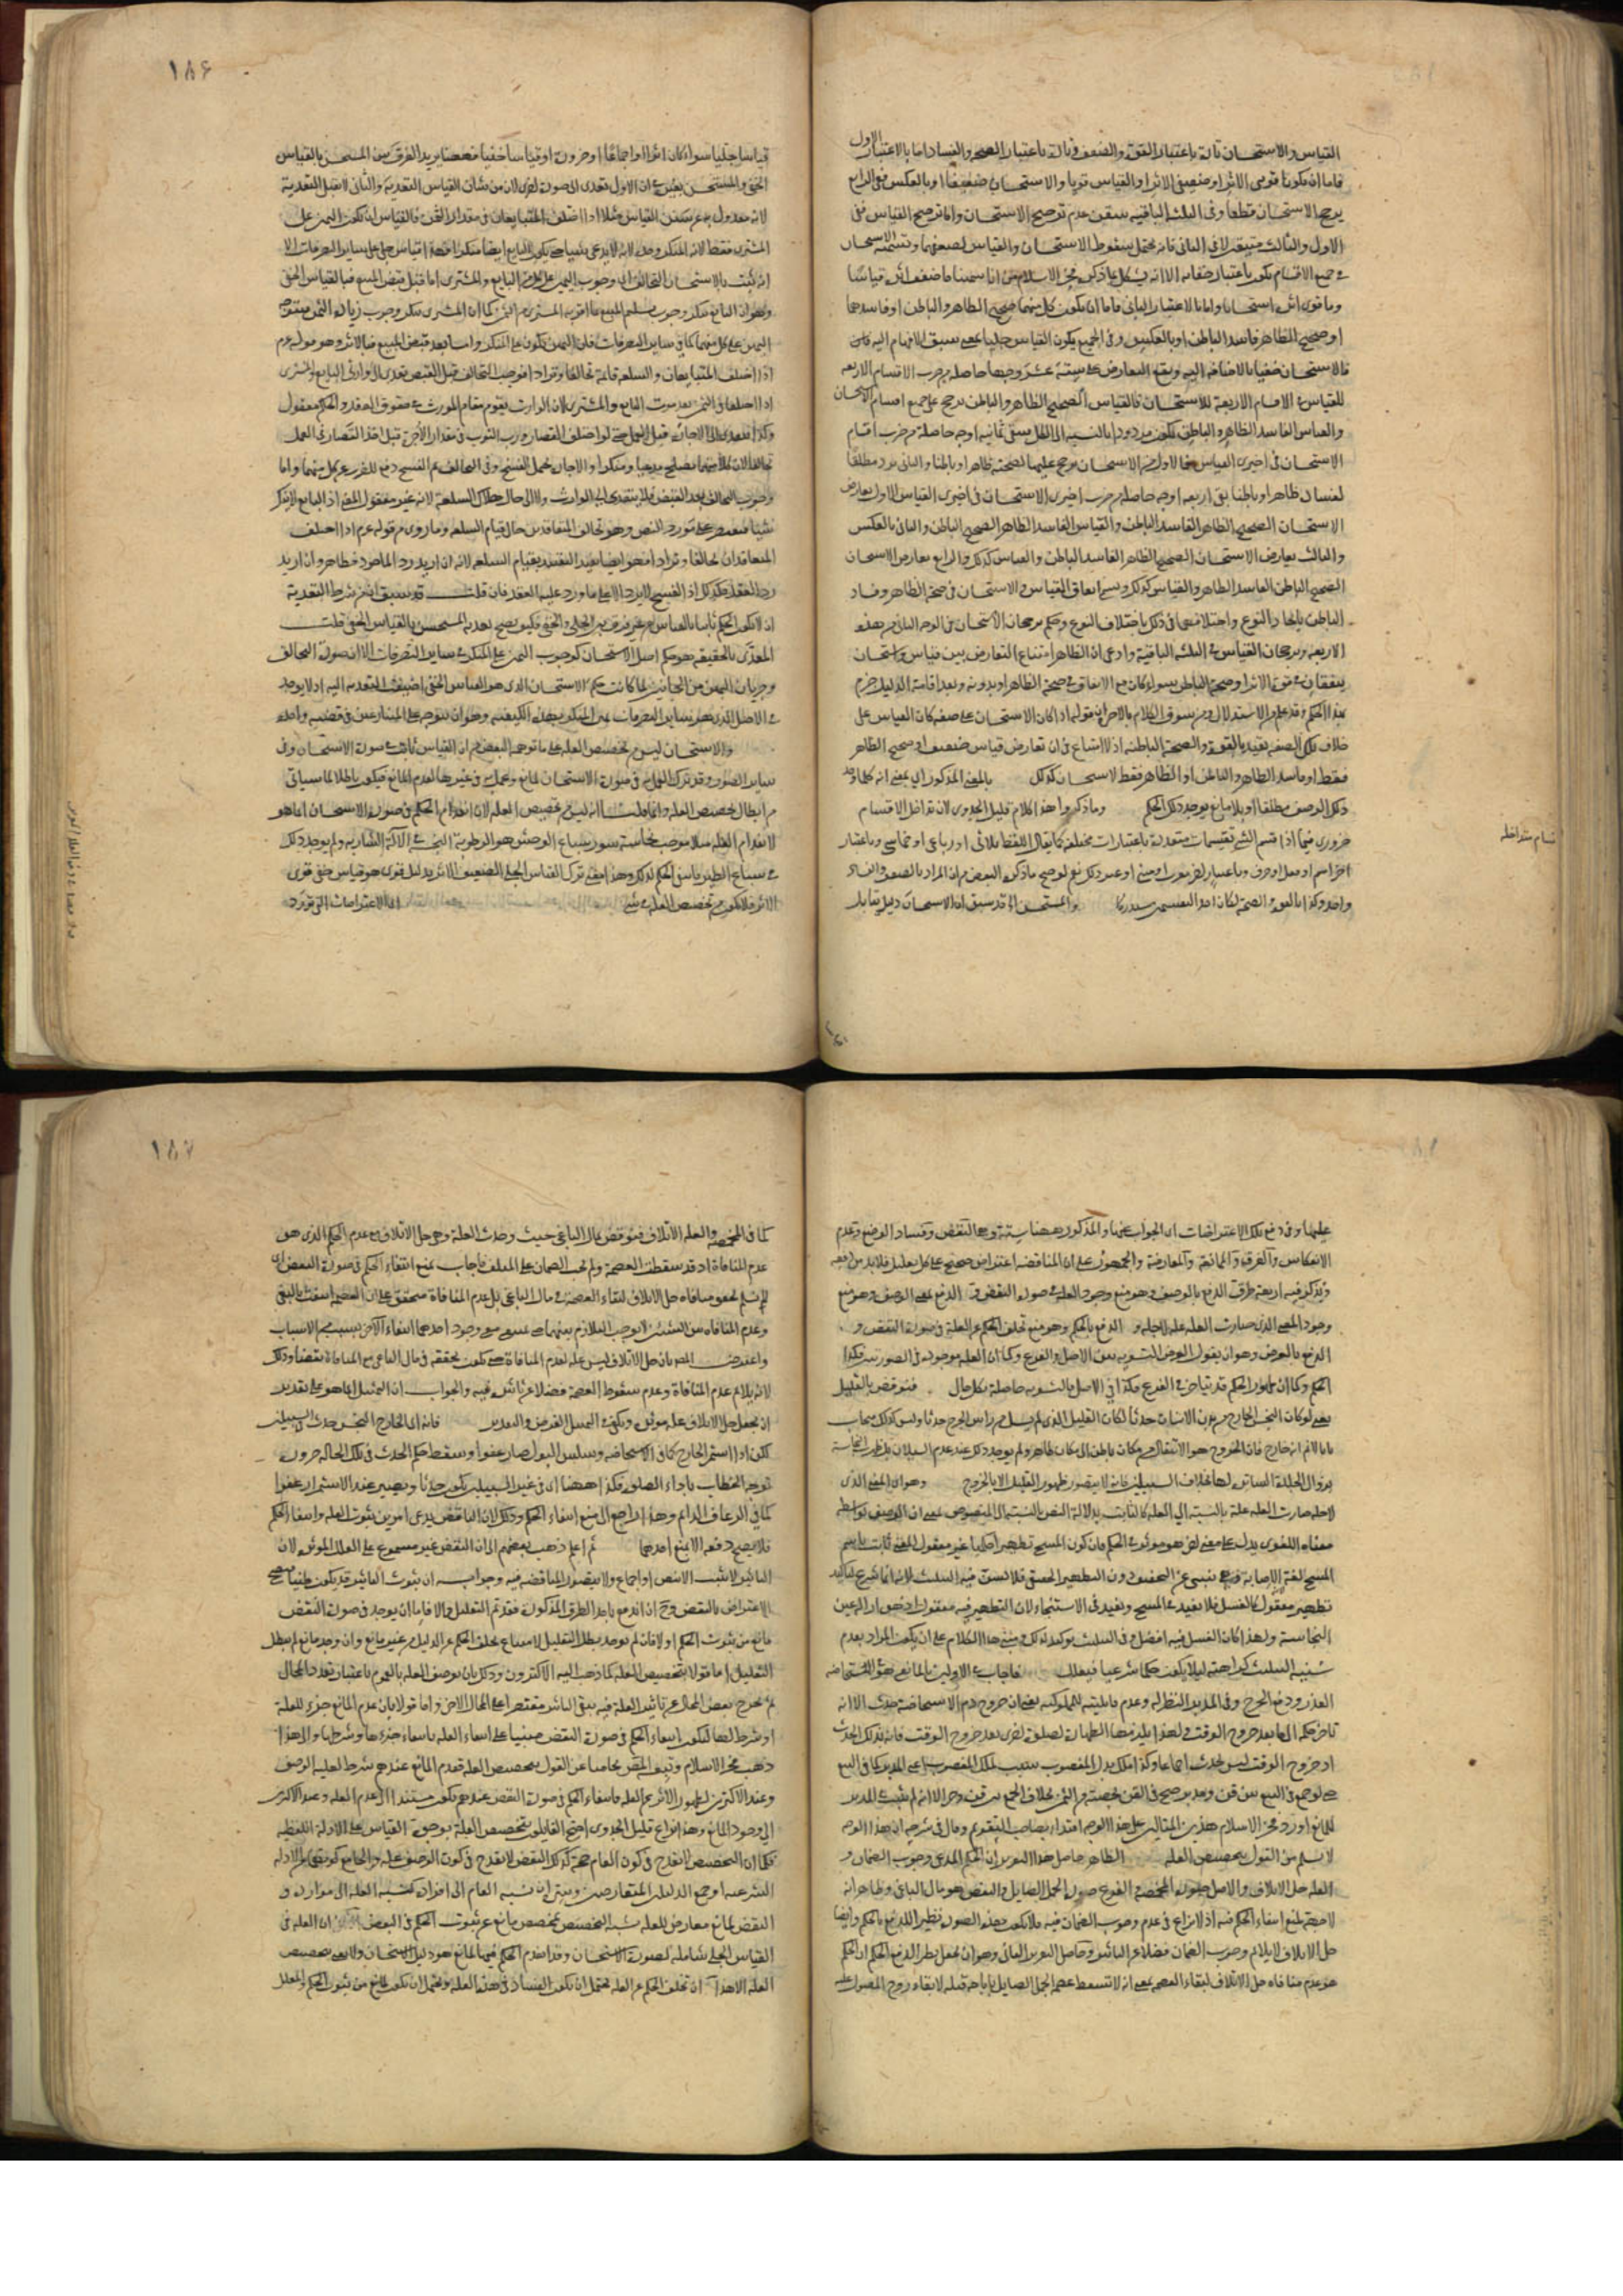 القياس والاستحسان تارة باعتبار القوة والضعف وتارة باعتبار الصحة والفساد اما بالاعتبار الاول
فاما ان يكونا قويي الاثر او ضعيفي الاثر او القياس قويا والاستحسان ضعيفا او بالعكس ففي الرابع
يرجح الاستحسان قطعا وفي الثلثة الباقية تيقن عدم ترجيح الاستحسان واما ترجيح القياس ففي
الاول والثالث متيقن لا في الثاني فانه يحتمل سقوط الاستحسان والقياس لضعفهما وتسمية الاستحسان
في جميع الاقسام تكون باعتبار خفائه الا انه يشكل بما ذكره فخر الاسلام من انا سمينا ما ضعف اثره قياسا
وما قوي اثره استحسانا واما بالاعتبار الثاني فاما ان يكون كل منهما صحيح الظاهر والباطن او فاسدهما
او صحيح الظاهر فاسد الباطن او بالعكس وفي الجميع يكون القياس جليا بمعنى سبق الافهام اليه
فالاستحسان خفيا بالاضافة اليه ويقع التعارض على ستة عشر وجها حاصلة من ضرب الاقسام الاربعة
للقياس في الاقسام الاربعة للاستحسان فالقياس الصحيح الظاهر والباطن يرجح على جميع اقسام الاستحسان
والقياس الفاسد الظاهر والباطن يكون مردودا بالنسبة الى الكل يبقى ثمانية اوجه حاصلة من ضرب اقسام
الاستحسان في اخيري القياس فالاول من الاستحسان يرجح عليهما لصحته ظاهرا وباطنا والثاني يرد مطلقا
لفساده ظاهرا وباطنا بقي اربعة اوجه حاصلة من ضرب اخيري الاستحسان في اخيري القياس الاول يعارض
الاستحسان الصحيح الظاهر الفاسد الباطن والقياس الفاسد الظاهر الصحيح الباطن والثاني بالعكس
والثالث يعارض الاستحسان الصحيح الظاهر الفاسد الباطن والقياس كذلك والرابع يعارض الاستحسان
الصحيح الباطن الفاسد الظاهر والقياس كذلك وسمى اتفاق القياس والاستحسان في صحة الظاهر وفساد
الباطن باتحاد النوع واختلافهما في ذلك باختلاف النوع وحكم برجحان الاستحسان في الوجه الثاني من هذه
الاربعة وبرجحان القياس في الثلثة الباقية وادعى ان الظاهر امتناع التعارض بين قياس واستحسان
يتفقان في قوة الاثر او صحة الباطن سواء كان مع الاتفاق في صحة الظاهر او بدونه وبعد اقامة الدليل جزم
بهذا الحكم وقد علم من الاستدلال ومن سوق الكلام بالاخرة ان قوله اذا كان الاستحسان على صفة كان القياس على
خلاف تلك الصفة يقيد بالقوة والصحة الباطنة اذ لا امتناع في ان تعارض قياس ضعيف او صحيح الظاهر
فقط او فاسد الظاهر والباطن او الظاهر فقط لاستحسان كذلك بالمعنى المذكور اي بمعنى انه كلما وجد
ذلك الوصف مطلقا او بلا مانع يوجد ذلك الحكم وما ذكروا هذا كلام قليل الجدوى لان تداخل الاقسام
ضروري فيما اذا قسم الشيء تقسيمات متعددة باعتبارات مختلفة كما يقال اللفظ ثلاثي او رباعي او خماسي وباعتبار
اخر اسم او فعل او حرف وباعتبار اخر معرب او مبني او غير ذلك نعم لو صح ما ذكره البعض من ان المراد بالضعف والفساد
واحد وكذا بالقوة والصحة لكان احد التقسيمين مستدركا والمستحسن الخ قد سبق ان الاستحسان دليل يقابل
اقسام متداخلة
١٨٦
قياسا جليا سواء كان اثرا او اجماعا او ضرورة او قياسا خفيا فههنا يريد الفرق بين المستحسن بالقياس
الخفي والمستحسن بغيره في ان الاول يتعدى الى صورة اخرى لان من شان القياس التعدية والثاني لا يقبل التعدية
لانه معدول به عن سنن القياس مثلا اذا اختلف المتبايعان في مقدار الثمن فالقياس ان يكون اليمين على
المشتري فقط لانه المنكر وحده لانه لا يدعي شيئا حتى يكون البايع ايضا منكرا فهذا قياس جلي على ساير التصرفات الا
انه يثبت بالاستحسان التحالف اي وجوب اليمين على كل من البايع والمشتري اما قبل قبض المبيع فبالقياس الخفي
وهو ان البايع ينكر وجوب تسليم المبيع بما اقر به المشتري من الثمن كما ان المشتري ينكر وجوب زيادة الثمن فيتوجه
اليمين على كل منهما كما في ساير التصرفات فان اليمين تكون على المنكر واما بعد قبض المبيع فبالاثر وهو قوله عم
اذا اختلف المتبايعان والسلعة قائمة تحالفا وترادا فوجب التحالف قبل القبض يتعدى الى وارثي البايع والمشتري
اذا اختلفا في الثمن بعد موت البايع والمشتري لان الوارث يقوم مقام المورث في حقوق العقد والحكم معقول
وكذا يتعدى الى الاجارة قبل العمل حتى لو اختلف القصار ورب الثوب في مقدار الاجرة قبل اخذ القصار في العمل
تحالفا لان كلا منهما يصلح مدعيا ومنكرا والاجارة تحتمل الفسخ وفي التحالف ثم الفسخ دفع للضرر عن كل منهما واما
وجوب التحالف بعد القبض فلا يتعدى الى الوارث ولا الى حال هلاك السلعة لانه غير معقول المعنى اذ البايع لا ينكر
شيئا فيقتصر على مورد النص وهو تحالف المتعاقدين حال قيام السلعة وما روي من قوله عم اذا اختلف
المتعاقدان تحالفا وترادا فهو ايضا يفيد التقييد بقيام السلعة لانه ان اريد رد الماخوذ فظاهر وان اريد
رد العقد فكذلك اذ الفسخ لا يرد الا على ما ورد عليه العقد فان قلت قد سبق ان من شرط التعدية
ان لا يكون الحكم ثابتا بالقياس من غير فرق بين الجلي والخفي فكيف يصح تعدية المستحسن بالقياس الخفي قلت
المعدى بالحقيقة هو حكم اصل الاستحسان كوجوب اليمين على المنكر في ساير التصرفات الا ان صورة التحالف
وجريان اليمين من الجانبين لما كانت حكم الاستحسان الذي هو القياس الخفي اضيفت التعدية اليه اذ لا يوجد
في الاصل الذي هو ساير التصرفات يمين المنكر بهذه الكيفية وهو ان يتوجه على المتنازعين في قضية واحدة
والاستحسان ليس من تخصيص العلة على ما توهمه البعض من ان القياس ثابت في صورة الاستحسان وفي
ساير الصور وقد ترك العمل به في صورة الاستحسان لمانع وعمل به في غيرها لعدم المانع فيكون باطلا لما سياتي
من ابطال تخصيص العلة وانما قلت انه ليس من تخصيص العلة لان انعدام الحكم في صورة الاستحسان انما هو
لانعدام العلة مثلا موجب نجاسة سور سباع الوحش هو الرطوبة النجسة في الالة الشاربة ولم يوجد ذلك
في سباع الطير فانتفى الحكم لذلك وهذا معنى ترك القياس الجلي الضعيف الاثر بدليل قوي هو قياس خفي قوي
الاثر فلا يكون من تخصيص العلة في شيء اي الاعتراضات التي تورد
عليها وفي دفع تلك الاعتراضات اي الجواب عنها والمذكور ههنا ستة وهي النقض وفساد الوضع وعدم
الانعكاس والفرق والممانعة والمعارضة والجمهور على ان المناقضة اعتراض صحيح على كل تعليل فلا بد من دفعه
وذكر فيه اربعة طرق الدفع بالوصف وهو منع وجود العلة في صورة النقض وآ الدفع بمعنى الوصف وهو منع
وجود المعنى الذي صارت العلة علة لاجله و الدفع بالحكم وهو منع تخلف الحكم عن العلة في صورة النقض و
الدفع بالغرض وهو ان يقول الغرض التسوية بين الاصل والفرع وكما ان العلة موجودة في الصورتين فكذا
الحكم وكما ان ظهور الحكم قد يتاخر في الفرع فكذا في الاصل بالتسوية حاصلة بكل حال فنوقض بالقليل
يعني لو كان النجس الخارج من بدن الانسان حدثا لكان القليل الذي لم يسل من راس الجرح حدثا وليس كذلك فيجاب
بانا لانم انه خارج فان الخروج هو الانتقال من مكان باطن الى مكان ظاهر ولم يوجد ذلك عند عدم السيلان بل ظهرت النجاسة
بزوال الجلدة الساترة لها بخلاف السبيلين فانه لا يتصور ظهور القليل الا بالخروج وهو ان المعنى الذي
لاجله صارت العلة علة بالنسبة الى العلة كالثابت بدلالة النص بالنسبة الى المنصوص بمعنى ان الوصف بواسطة
معناه اللغوي يدل على معنى اخر هو مؤثر في الحكم فان كون المسح تطهيرا حكميا غير معقول المعنى ثابت باسم
المسح لغة الاصابة وهي تنبئ عن التخفيف دون التطهير الحقيقي فلا يسن فيه التثليث لانه انما شرع لتاكيد
تطهير معقول كالغسل فلا يفيد في المسح ويفيد في الاستنجاء لان التطهير فيه معقول اذ هو ازالة عين
النجاسة ولهذا كان الغسل فيه افضل وفي التثليث توكيد لذلك ومبنى هذا الكلام على ان يكون المراد بعدم
سنية التثليث كراهته ليكون حكما شرعيا فيعلل فاجاب في الاولين بالمانع
العذر ودفع الحرج وفي المدبر النظر له وعدم قابليته للمملوكية يعني ان خروج دم الاستحاضة حدث الا انه
تاخر حكمه الى ما بعد خروج الوقت ولهذا يلزمها الطهارة لصلوة اخرى بعد خروج الوقت فانه بذلك الحدث
اذ خروج الوقت ليس بحدث اجماعا وكذا ملك بدل المغصوب سبب لملك المغصوب كما في البيع
حتى لو جمع في البيع بين قن ومدبر صح في القن بحصته من الثمن بخلاف الجمع بين قن وحر الا انه لم يثبت في المدبر
للمانع اورد فخر الاسلام هذين المثالين على هذا الوجه اقتداء بصاحب التقويم وقال في شرحه ان هذا الوجه
لا يسلم من القول بتخصيص العلة الظاهر حاصل هذا التقرير ان الحكم المدعى وجوب الضمان و
العلة حل الاتلاف والاصل صورة المخمصة والفرع صورة الجمل الصايل والنقض هو مال الباغي وظاهر انه
لا جهة لمنع انتفاء الحكم فيه اذ لا نزاع في عدم وجوب الضمان فيه فلا يكون هذه الصورة نظير الدفع بالحكم وايضا
حل الاتلاف لا يلائم وجوب الضمان فضلا عن التاثير وحاصل التقرير الثاني وهو ان يجعل نظير الدفع بالحكم ان الحكم
هو عدم منافاة حل الاتلاف لبقاء العصمة بمعنى انه لا تسقط عصمة الجمل الصايل باباحة قتله لابقاء روح المصول عليه
١٨٧
كما في المخمصة والعلة الاتلاف فنوقض بمال الباغي حيث وجدت العلة وهي حل الاتلاف مع عدم الحكم الذي هو
عدم المنافاة اذ قد سقطت العصمة ولم يجب الضمان على المتلف فاجاب بمنع انتفاء الحكم في صورة النقض اي
لانم تحقق منافاة حل الاتلاف لبقاء العصمة في مال الباغي بل عدم المنافاة متحقق على ان العصمة انتفت بالبغي
وعدم المنافاة بين الشيئين لا يوجب التلازم بينهما حتى يمتنع مع وجود احدهما انتفاء الاخر بسبب من الاسباب
واعترض المص بان حل الاتلاف ليس علة لعدم المنافاة حتى يكون تحققه في مال الباغي مع المنافاة نقضا وذلك
لانه يلائم عدم المنافاة وعدم سقوط العصمة فضلا عن تاثيره فيه والجواب ان التمثيل انما هو على تقدير
ان يجعل حل الاتلاف علة مؤثرة ويكفي في التمثيل الفرض والتقدير فانه اي الخارج النجس حدث في السبيلين
لكن اذا استمر الخارج كما في الاستحاضة وسلس البول صار عفوا وسقط حكم الحدث في تلك الحالة ضرورة
توجه الخطاب باداء الصلوة فكذا ههنا اي في غير السبيلين يكون حدثا ويصير عند الاستمرار عفوا
كما في الرعاف الدائم وهذا راجع الى منع انتفاء الحكم وذلك لان الناقض يدعي امرين ثبوت العلة وانتفاء الحكم
فلا يصح دفعه الا بمنع احدهما ثم اعلم ذهب بعضهم الى ان النقض غير مسموع على العلل المؤثرة لان
التاثير لا يثبت الا بنص او اجماع ولا يتصور المناقضة فيه وجوابه ان ثبوت التاثير قد يكون ظنيا فيصح
الاعتراض بالنقض وح ان اندفع باحد الطرق المذكورة فقد تم التعليل والا فاما ان يوجد في صورة النقض
مانع من ثبوت الحكم او لا فان لم يوجد بطل التعليل لامتناع تخلف الحكم عن الدليل من غير مانع وان وجد مانع لم يبطل
التعليل اما قولا بتخصيص العلة كما ذهب اليه الاكثرون وذلك بان يوصف العلة بالعموم باعتبار تعدد المحال
ثم يخرج بعض المحال عن تاثير العلة فيه يبقى التاثير مقتصرا على المحال الاخر واما قولا بان عدم المانع جزء للعلة
او شرط لها ليكون انتفاء الحكم في صورة النقض مبنيا على انتفاء العلة بانتفاء جزءها او شرطها والى هذا
ذهب فخر الاسلام وتبعه المص تحاشيا عن القول بتخصيص العلة فعدم المانع عندهم شرط لعلية الوصف
وعند الاكثرين لظهور الاثر عن العلة فانتفاء الحكم في صورة النقض عندهم يكون مستندا الى عدم العلة وعند الاكثرين
الى وجود المانع وهذا نزاع قليل الجدوى احتج القايلون بتخصيص العلة بوجوه القياس على الادلة اللفظية
فكما ان التخصيص لا يقدح في كون العام حجة كذلك النقض لا يقدح في كون الوصف علة والجامع كونهما من الادلة
الشرعية او جمع الدليلين المتعارضين وبين ان نسبة العام الى افراده كنسبة العلة الى مواردها و
النقض لمانع معارض للعلة يشبه التخصيص بمخصص مانع عن ثبوت الحكم في البعض ان العلة في
القياس الجلي شاملة لصورة الاستحسان وقد انعدم الحكم فيها لمانع هو دليل الاستحسان ولا نعني بتخصيص
العلة الا هذا ان تخلف الحكم عن العلة يحتمل ان يكون لفساد في هذه العلة ويحتمل ان يكون لمانع من ثبوت الحكم والمعلل